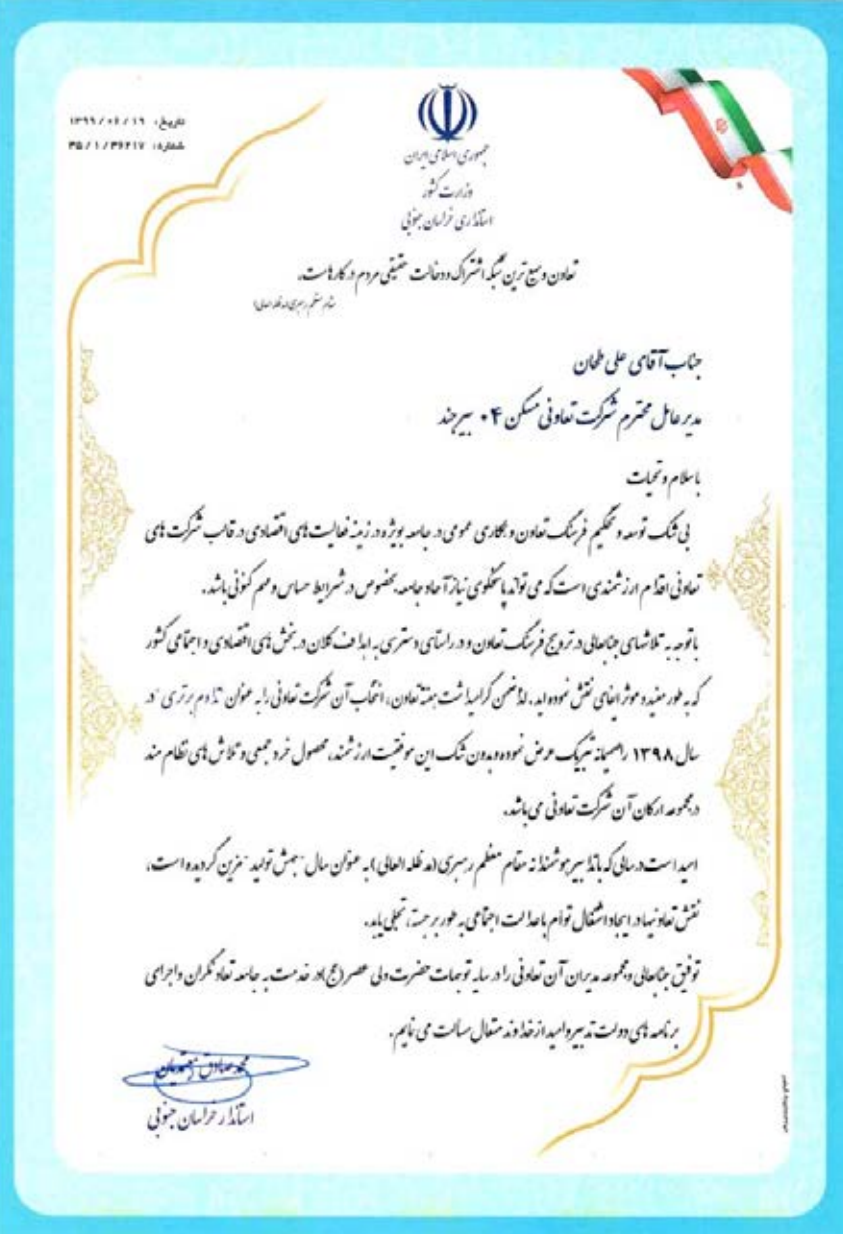 تاریخ: ۱۳۹۹/۰۶/۱۹
شماره: ۳۵/۱/۳۶۲۱۷
جمهوری اسلامی ایران
وزارت کشور
استانداری خراسان جنوبی
تعاون وسیع ترین شبکه اشتراک و دخالت حقیقی مردم در کارهاست.
مقام معظم رهبری (مد ظله العالی)
جناب آقای علی طحان
مدیر عامل محترم شرکت تعاونی مسکن ۰۴ بیرجند
با سلام و تحیات
بی شک توسعه و تحکیم فرهنگ تعاون و همکاری عمومی در جامعه بویژه در زمینه فعالیت های اقتصادی در قالب شرکت های
تعاونی اقدام ارزشمندی است که می تواند پاسخگوی نیاز آحاد جامعه، بخصوص در شرایط حساس و مهم کنونی باشد.
باتوجه به تلاشهای جنابعالی در ترویج فرهنگ تعاون و در راستای دسترسی به اهداف کلان در بخش های اقتصادی و اجتماعی کشور
که به طور مفید و موثر ایفای نقش نموده اید. لذا ضمن گرامیداشت هفته تعاون، انتخاب آن شرکت تعاونی را به عنوان "تداوم برتری" در
سال ۱۳۹۸ صمیمانه تبریک عرض نموده و بدون شک این موفقیت ارزشمند، محصول خرد جمعی و تلاش های نظام مند
در مجموعه ارکان آن شرکت تعاونی می باشد.
امید است در سالی که با تدابیر هوشمندانه مقام معظم رهبری (مد ظله العالی) به عنوان سال "جهش تولید" مزین گردیده است،
نقش تعاونیها در ایجاد اشتغال توأم با عدالت اجتماعی به طور برجسته، تجلی یابد.
توفیق جنابعالی و مجموعه مدیران آن تعاونی را در سایه توجهات حضرت ولی عصر (عج) در خدمت به جامعه تعاونگران و اجرای
برنامه های دولت تدبیر و امید از خداوند متعال مسألت می نمایم.
محمد صادق معتمدیان
استاندار خراسان جنوبی